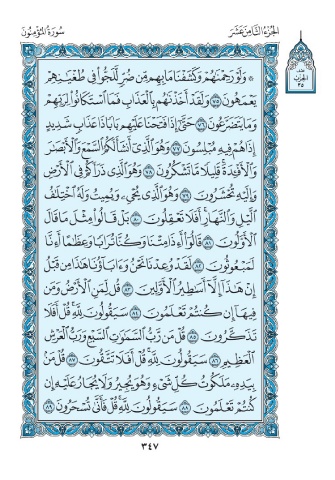 سُورَةُ المُؤْمِنُونَ
الجُزْءُ الثَّامِنَ عَشَرَ
الحزب
٣٥
۞ وَلَوْ رَحِمْنَٰهُمْ وَكَشَفْنَا مَا بِهِم مِّن ضُرٍّ لَّلَجُّوا۟ فِى طُغْيَٰنِهِمْ
يَعْمَهُونَ ٧٥ وَلَقَدْ أَخَذْنَٰهُم بِٱلْعَذَابِ فَمَا ٱسْتَكَانُوا۟ لِرَبِّهِمْ
وَمَا يَتَضَرَّعُونَ ٧٦ حَتَّىٰٓ إِذَا فَتَحْنَا عَلَيْهِم بَابًا ذَا عَذَابٍ شَدِيدٍ
إِذَا هُمْ فِيهِ مُبْلِسُونَ ٧٧ وَهُوَ ٱلَّذِىٓ أَنشَأَ لَكُمُ ٱلسَّمْعَ وَٱلْأَبْصَٰرَ
وَٱلْأَفْـِٔدَةَ قَلِيلًا مَّا تَشْكُرُونَ ٧٨ وَهُوَ ٱلَّذِى ذَرَأَكُمْ فِى ٱلْأَرْضِ
وَإِلَيْهِ تُحْشَرُونَ ٧٩ وَهُوَ ٱلَّذِى يُحْىِۦ وَيُمِيتُ وَلَهُ ٱخْتِلَٰفُ
ٱلَّيْلِ وَٱلنَّهَارِ أَفَلَا تَعْقِلُونَ ٨٠ بَلْ قَالُوا۟ مِثْلَ مَا قَالَ
ٱلْأَوَّلُونَ ٨١ قَالُوٓا۟ أَءِذَا مِتْنَا وَكُنَّا تُرَابًا وَعِظَٰمًا أَءِنَّا
لَمَبْعُوثُونَ ٨٢ لَقَدْ وُعِدْنَا نَحْنُ وَءَابَآؤُنَا هَٰذَا مِن قَبْلُ
إِنْ هَٰذَآ إِلَّآ أَسَٰطِيرُ ٱلْأَوَّلِينَ ٨٣ قُل لِّمَنِ ٱلْأَرْضُ وَمَن
فِيهَآ إِن كُنتُمْ تَعْلَمُونَ ٨٤ سَيَقُولُونَ لِلَّهِ قُلْ أَفَلَا
تَذَكَّرُونَ ٨٥ قُلْ مَن رَّبُّ ٱلسَّمَٰوَٰتِ ٱلسَّبْعِ وَرَبُّ ٱلْعَرْشِ
ٱلْعَظِيمِ ٨٦ سَيَقُولُونَ لِلَّهِ قُلْ أَفَلَا تَتَّقُونَ ٨٧ قُلْ مَنۢ
بِيَدِهِۦ مَلَكُوتُ كُلِّ شَىْءٍ وَهُوَ يُجِيرُ وَلَا يُجَارُ عَلَيْهِ إِن
كُنتُمْ تَعْلَمُونَ ٨٨ سَيَقُولُونَ لِلَّهِ قُلْ فَأَنَّىٰ تُسْحَرُونَ ٨٩
٣٤٧